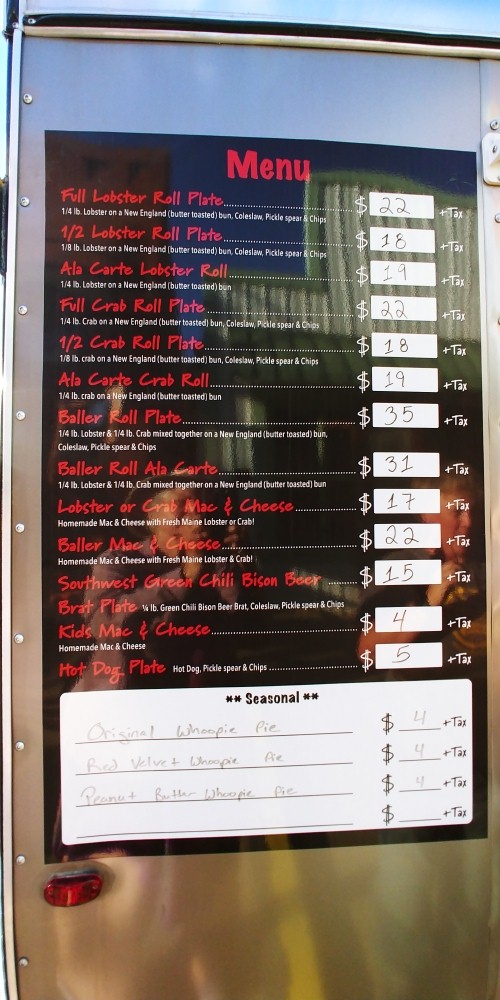 Menu
Full Lobster Roll Plate........ $ 22 +Tax
1/4 lb. Lobster on a New England (butter toasted) bun, Coleslaw, Pickle spear & Chips
1/2 Lobster Roll Plate........ $ 18 +Tax
1/8 lb. Lobster on a New England (butter toasted) bun, Coleslaw, Pickle spear & Chips
Ala Carte Lobster Roll........ $ 19 +Tax
1/4 lb. Lobster on a New England (butter toasted) bun
Full Crab Roll Plate........ $ 22 +Tax
1/4 lb. Crab on a New England (butter toasted) bun, Coleslaw, Pickle spear & Chips
1/2 Crab Roll Plate........ $ 18 +Tax
1/8 lb. crab on a New England (butter toasted) bun, Coleslaw, Pickle spear & Chips
Ala Carte Crab Roll........ $ 19 +Tax
1/4 lb. crab on a New England (butter toasted) bun
Baller Roll Plate........ $ 35 +Tax
1/4 lb. Lobster & 1/4 lb. Crab mixed together on a New England (butter toasted) bun,
Coleslaw, Pickle spear & Chips
Baller Roll Ala Carte........ $ 31 +Tax
1/4 lb. Lobster & 1/4 lb. Crab mixed together on a New England (butter toasted) bun
Lobster or Crab Mac & Cheese........ $ 17 +Tax
Homemade Mac & Cheese with Fresh Maine Lobster or Crab!
Baller Mac & Cheese........ $ 22 +Tax
Homemade Mac & Cheese with Fresh Maine Lobster & Crab!
Southwest Green Chili Bison Beer ........ $ 15 +Tax
Brat Plate ¼ lb. Green Chili Bison Beer Brat, Coleslaw, Pickle spear & Chips
Kids Mac & Cheese........ $ 4 +Tax
Homemade Mac & Cheese
Hot Dog Plate Hot Dog, Pickle spear & Chips ........ $ 5 +Tax
** Seasonal **
Original Whoopie Pie $ 4 +Tax
Red Velvet Whoopie Pie $ 4 +Tax
Peanut Butter Whoopie Pie $ 4 +Tax
$ +Tax